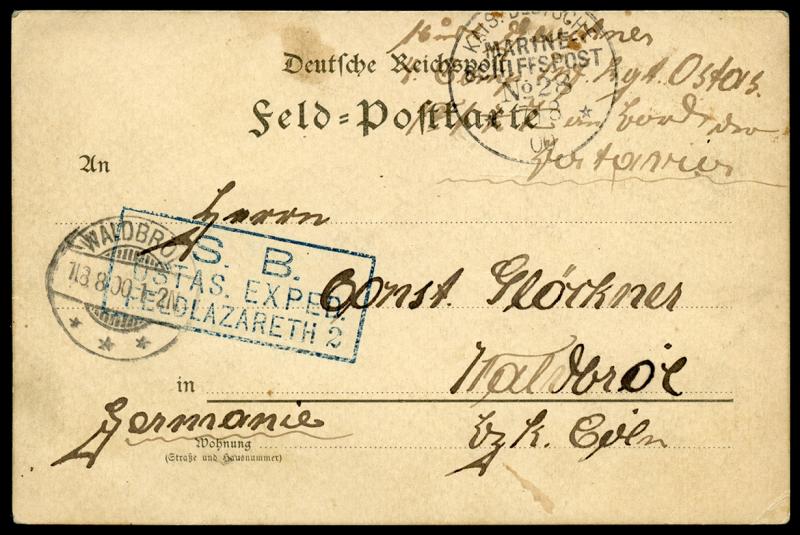 Deutsche Reichspost
Feld=Postkarte
KAIS. DEUTSCHE
MARINE-
SCHIFFSPOST
No 28
Rgt. Ostas.
an Bord der
Batavia
An
Herrn
WALDBRÖL
11.8.00.1-2N
S. B.
OSTAS. EXPED.
FELDLAZARETH 2
Const. Glöckner
in
Waldbröl
Germanie
bz k. Cöln
Wohnung
(Straße und Hausnummer)